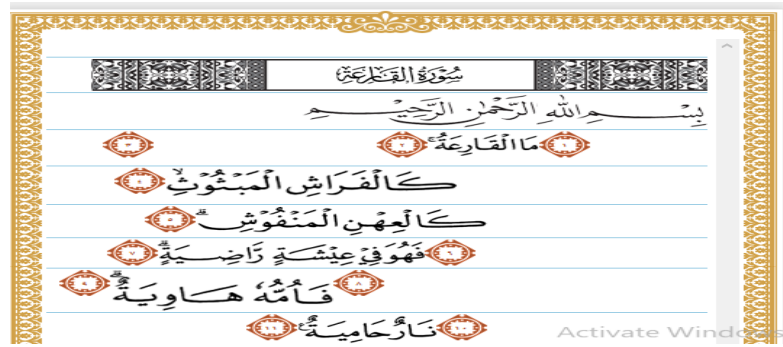 سُوْرَةُ الْقَارِعَةِ
بِسْمِ اللّٰهِ الرَّحْمٰنِ الرَّحِيْمِ
۱ مَا الْقَارِعَةُ ۚ ۲ ۳
كَالْفَرَاشِ الْمَبْثُوْثِ ۙ ۴
كَالْعِهْنِ الْمَنْفُوْشِ ؕ ۵
۶ فَهُوَ فِيْ عِيْشَةٍ رَّاضِيَةٍ ؕ ۷
۸ فَاُمُّهٗ هَاوِيَةٌ ؕ ۹
۱۰ نَارٌ حَامِيَةٌ ۱۱
Activate Windows